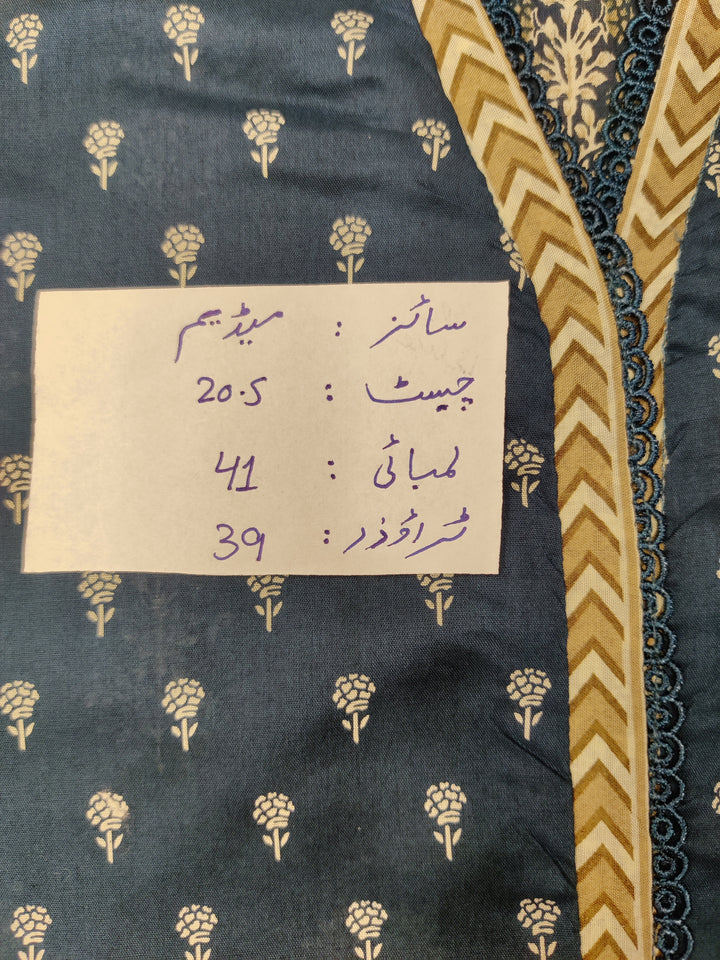 سائز : میڈیم
چیسٹ : 20.5
لمبائی : 41
ٹراؤذر : 39